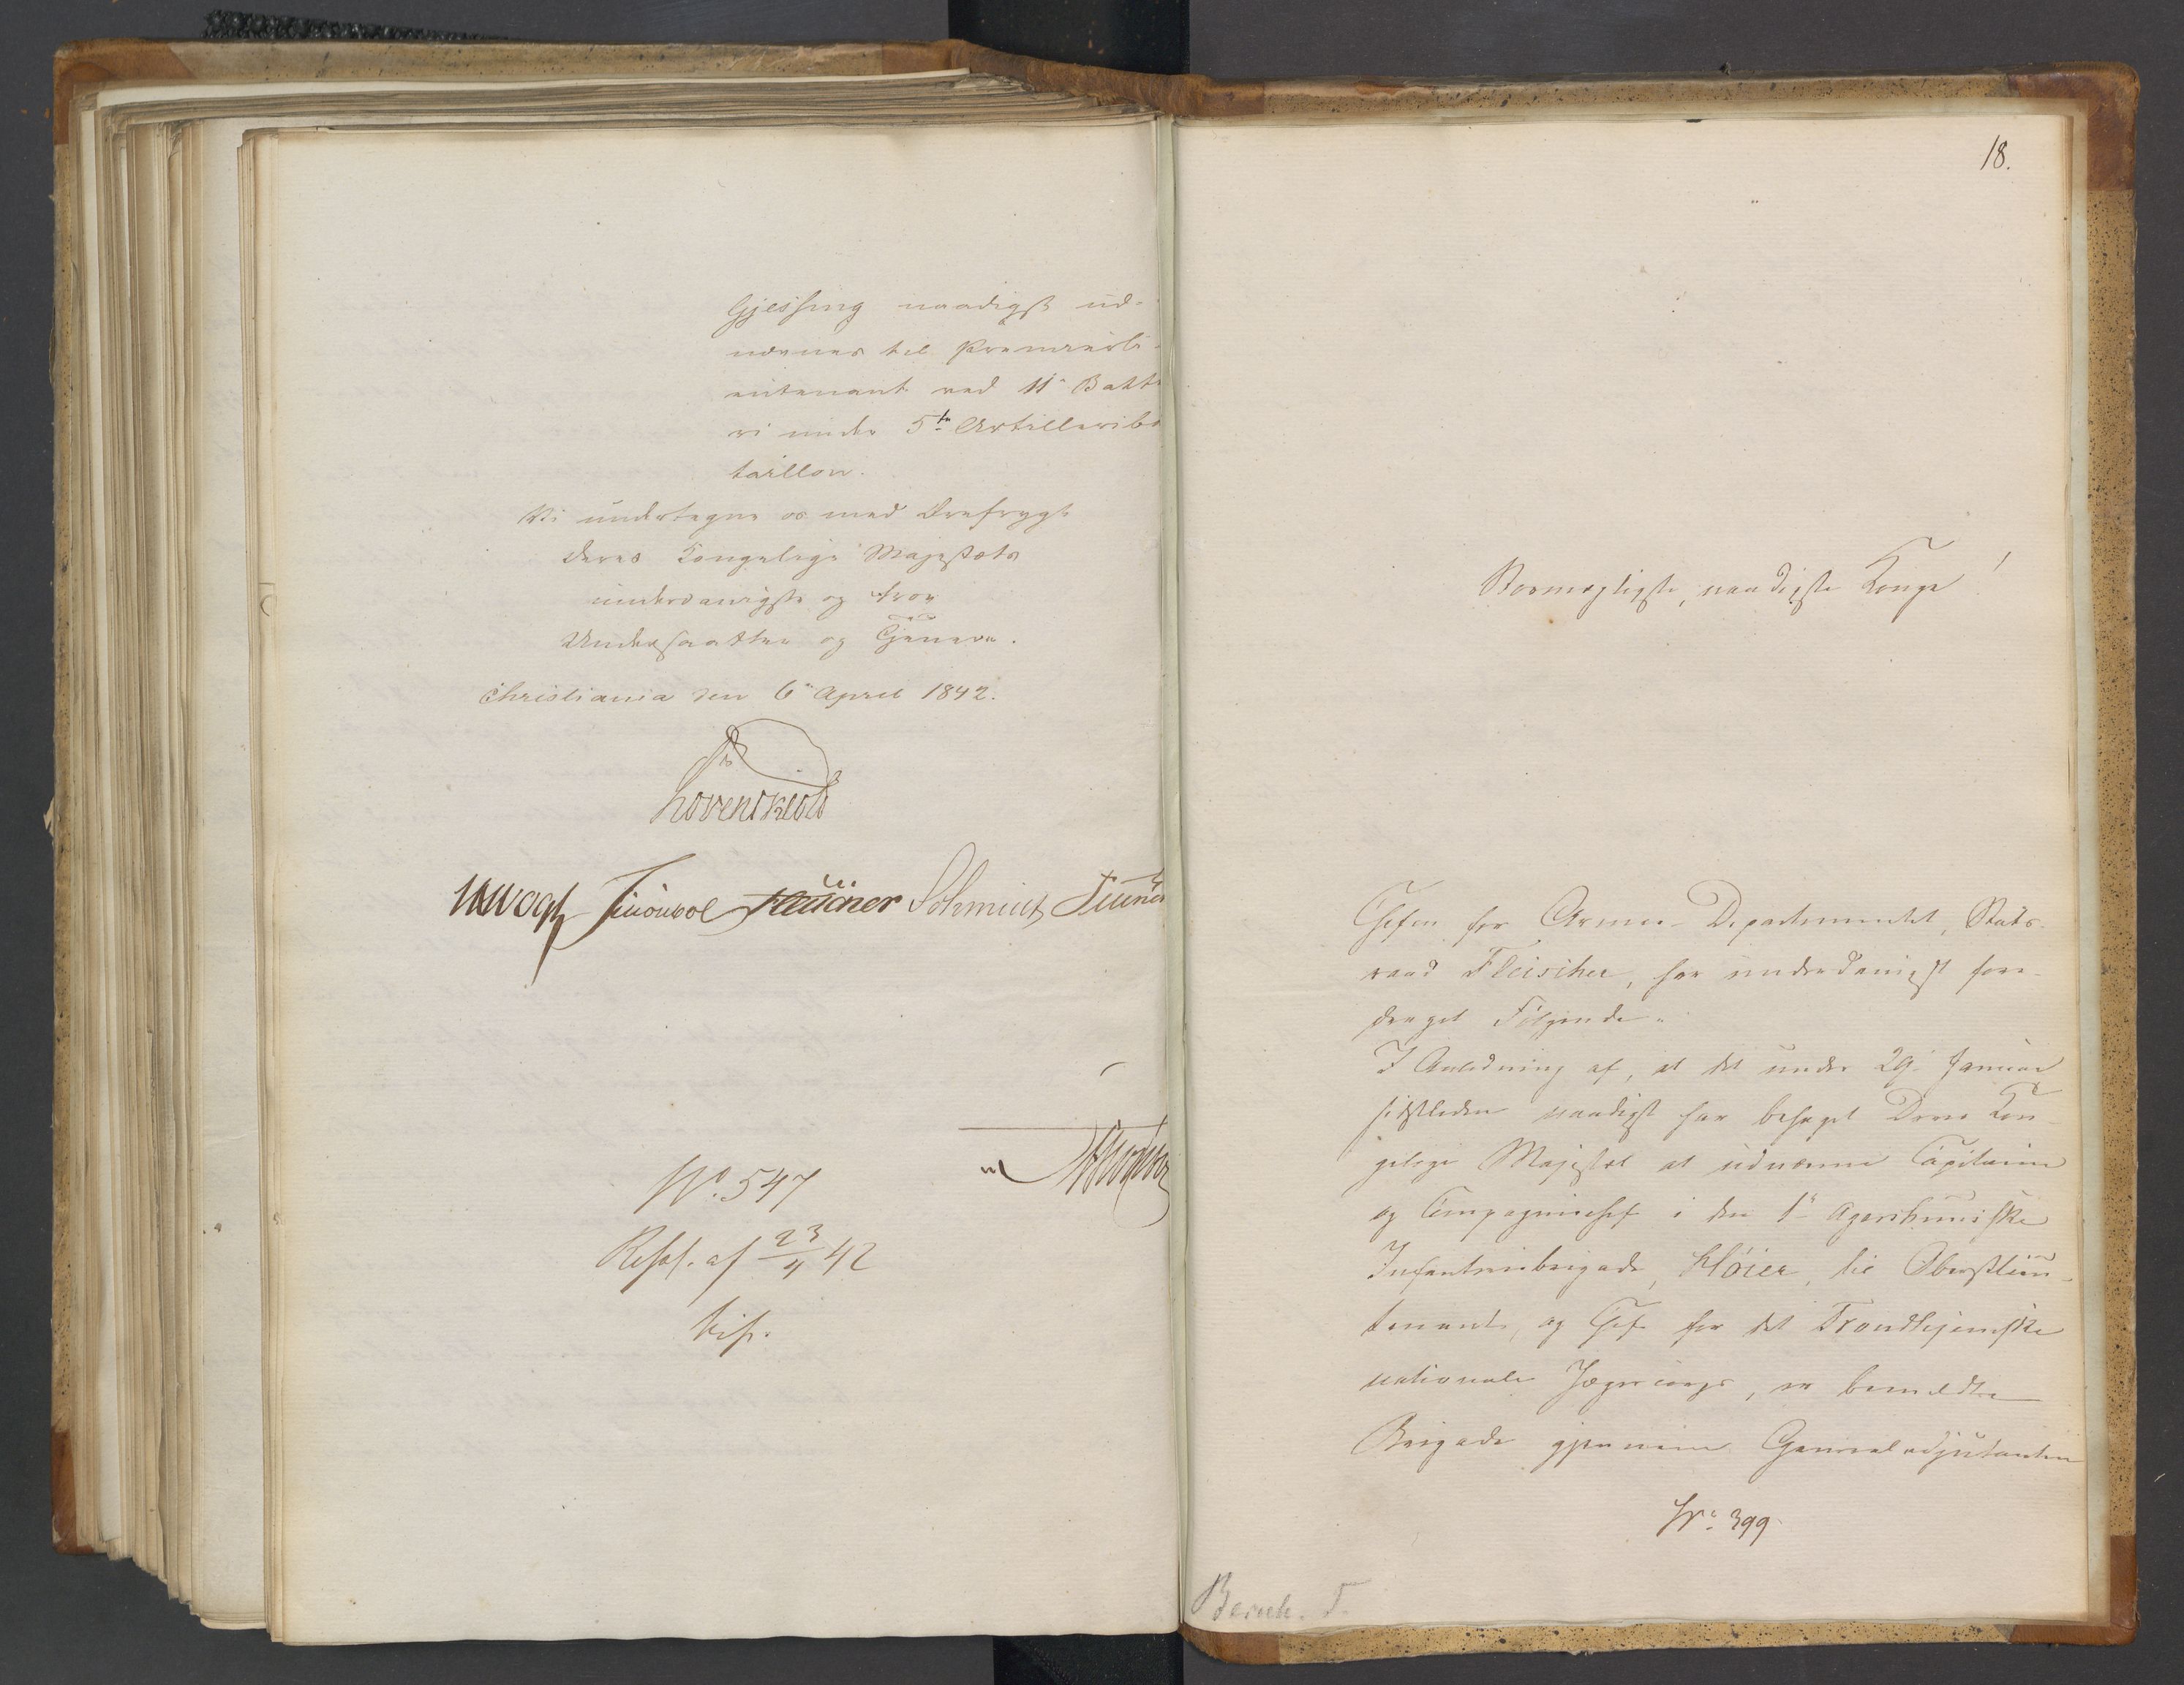 Gjessing naadigst ud-
nævnes til Premierli-
eutenant ved 11 Batte
ri under 5te Artilleriba
taillon.
Vi undertegne os med Ærefrygt
Deres Kongelige Majestæts
underdanigste og troe
Undersaatter og Tjenere.
Christiania den 6 April 1842.
Løvenskiold
Vogt Fleischer Schmidt
No. 547
Resol. af 23/4 42
18.
Stormægtigste, naadigste Konge!
Chefen for Armee-Departementet, Stats-
raad Fleischer, har underdanigst fore-
draget Følgende:
I Anledning af, at det under 29 Januar
sidstleden naadigst har behaget Deres Kon-
gelige Majestæt at udnævne Capitaine
og Compagniechef i den 1 Agershusiske
Infanteriebrigade, Høier, til Oberstlieu-
tenant, og Chef for det Trondhjemske
nationale Jægercorps, er bemeldte
Brigade gjennem Generaladjutanten
No. 399